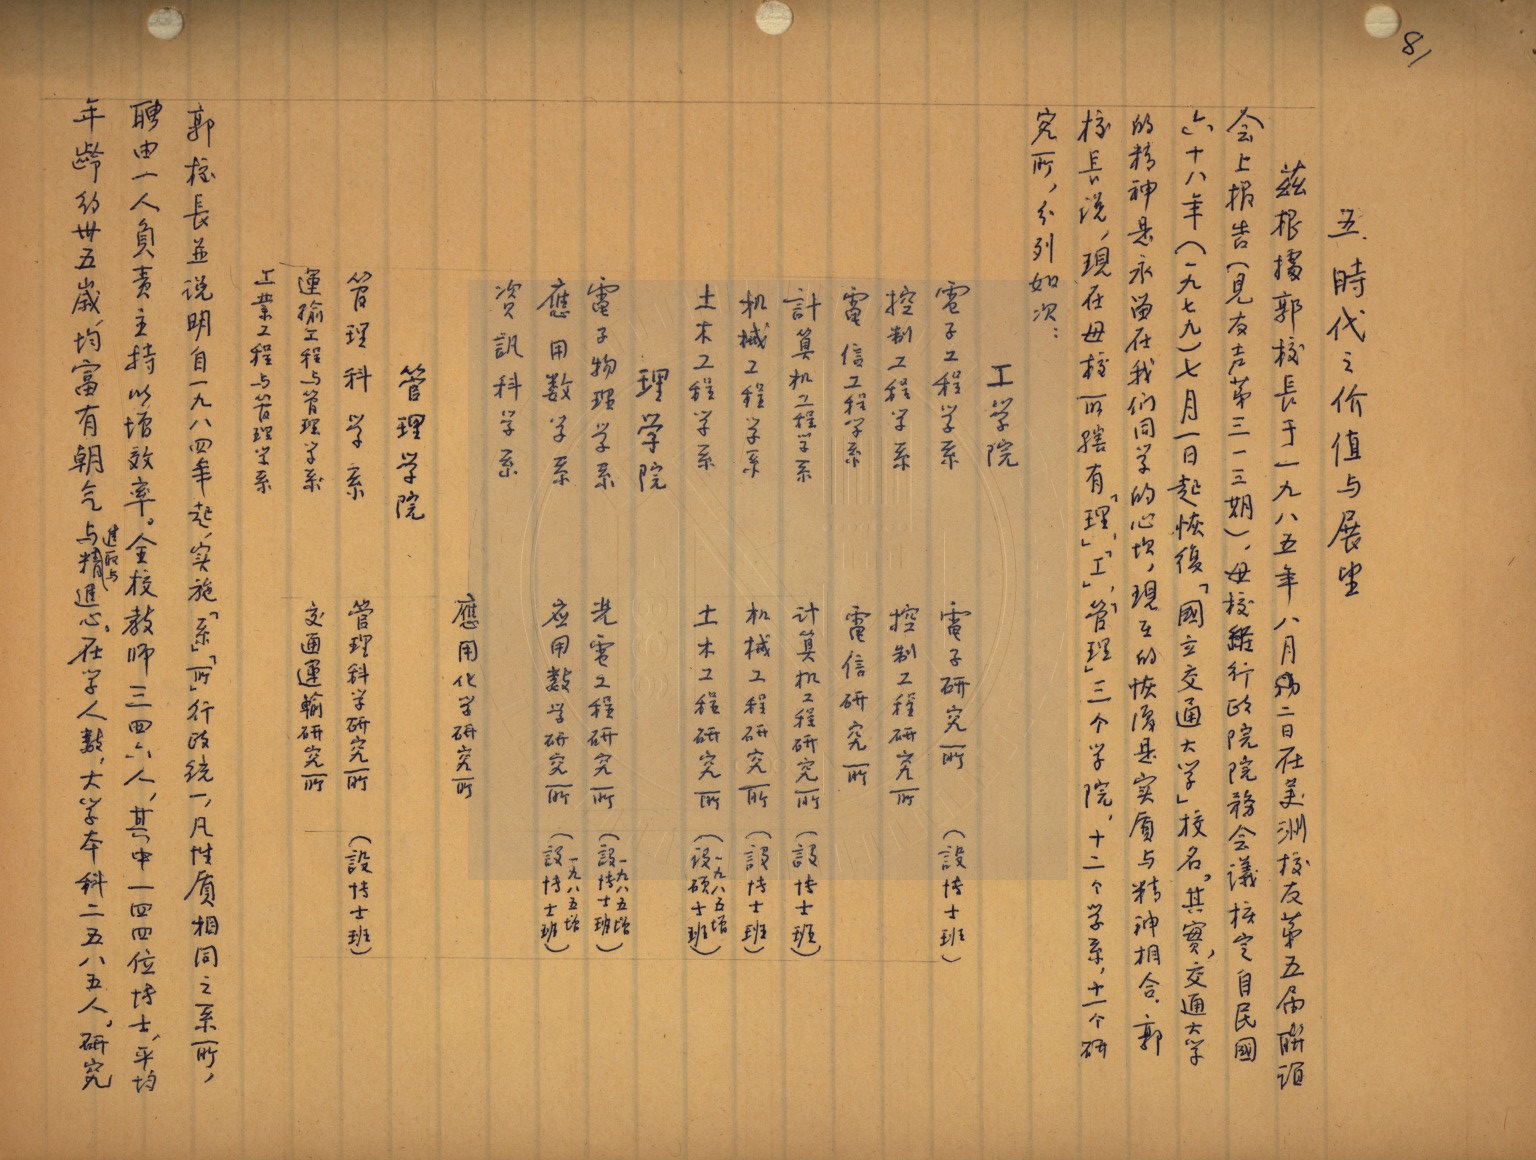 8/
五、時代之价值与展望
茲根據郭校長于一九八五年八月二日在美洲校友第五届聯誼
会上报告(見友声第三一三期),母校經行政院院務会議核定自民國
六十八年(一九七九)七月一日起恢復「國立交通大学」校名。其實,交通大学
的精神是永留在我们同学的心坎,現在的恢復是实质与精神相合.郭
校長说,現在母校所轄有「理」、「工」、「管理」三个学院,十二个学系,十一个研
究所,分列如次:
工学院
電子工程学系 電子研究所 (設博士班)
控制工程学系 控制工程研究所
電信工程学系 電信研究所
計算机工程学系 计算机工程研究所 (設博士班)
机械工程学系 机械工程研究所 (設博士班)
土木工程学系 土木工程研究所 (一九八五增設碩士班)
理学院
電子物理学系 光電工程研究所 (一九八五增設博士班)
應用数学系 应用数学研究所 (一九八五增設博士班)
資訊科学系
應用化学研究所
管理学院
管理科学系 管理科学研究所 (設博士班)
運输工程与管理学系 交通運輸研究所
工業工程与管理学系
郭校長並说明自一九八四年起,实施「系」「所」行政统一,凡性质相同之系所,
聘由一人負责主持以增效率。全校教师三四六人,其中一四四位博士,平均
年齡約卅五歲,均富有朝气与進取与精進心。在学人数,大学本科二五八五人,研究